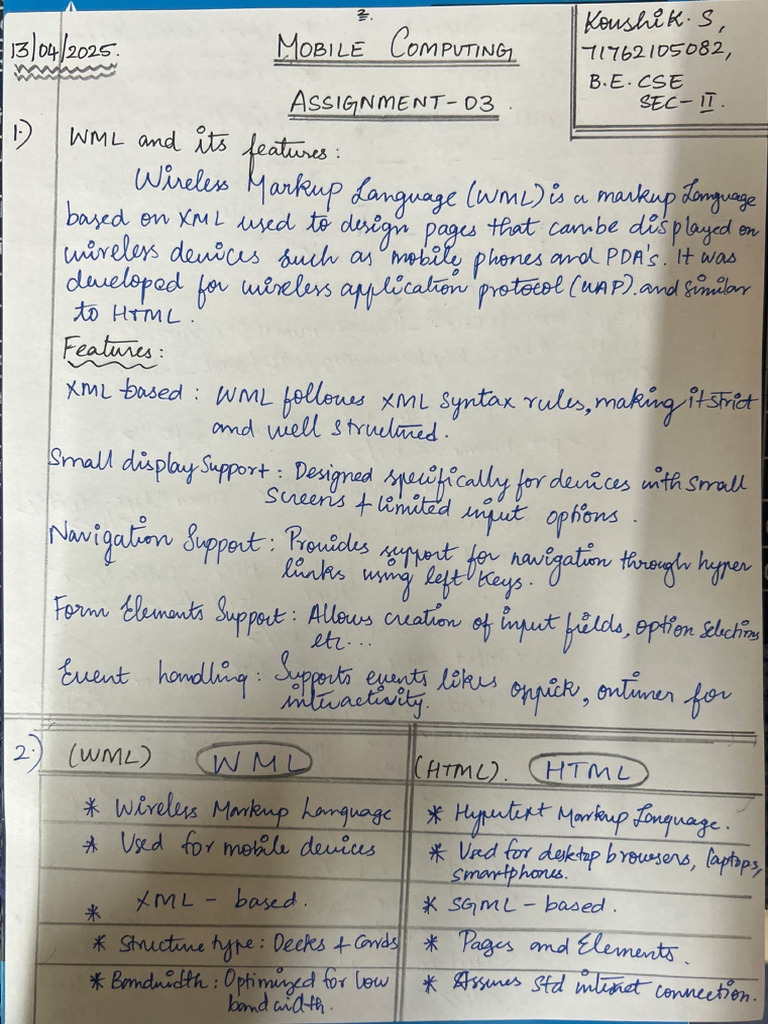 2.
13/04/2025.
MOBILE COMPUTING
ASSIGNMENT-03.
Koushik. S,
71762105082,
B.E. CSE
SEC-II.
1.) WML and its features:
Wireless Markup Language (WML) is a markup Language
based on XML used to design pages that can be displayed on
wireless devices such as mobile phones and PDA's. It was
developed for wireless application protocol (WAP). and similar
to HTML.
Features:
XML based: WML follows XML Syntax rules, making it strict
and well structured.
Small display Support: Designed specifically for devices with small
Screens + limited input options.
Navigation Support: Provides support for navigation through hyper
links using left Keys.
Form Elements Support: Allows creation of input fields, option Selections
etc...
Event handling: Supports events likes oppick, ontimer for
interactivity.
2.) (WML) WML
(HTML). HTML
* Wireless Markup Language
* Hypertext Markup Language.
* Used for mobile devices
* Used for desktop browsers, laptops,
smartphones.
* XML - based.
* SGML - based.
* Structure type: Decks + Cards
* Pages and Elements.
* Bandwidth: Optimized for low
bandwidth.
* Assures std internet connection.